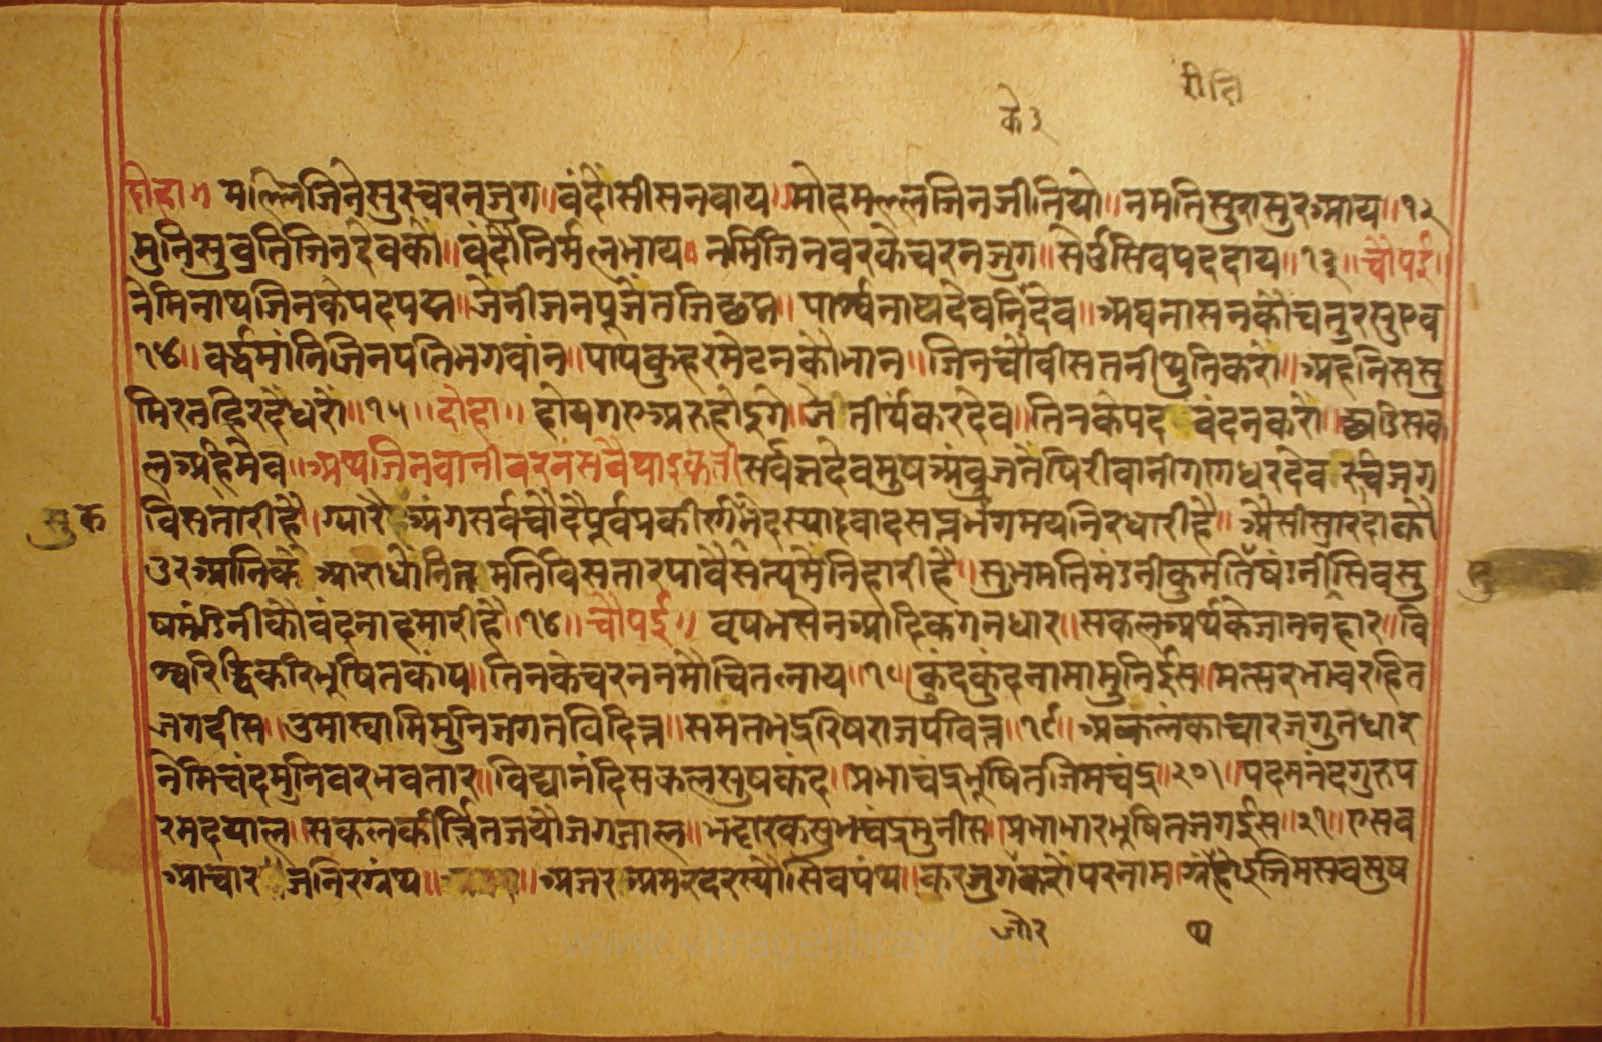 के ३
दोहा॥ मल्लिजिनेसुरचरनजुग॥वंदौंसीसनवाय॥मोहमल्लजिनजीतियो॥नमतिसुरासुरआय॥१२
मुनिसुव्रतिजिनदेवकौं॥वंदौंनिर्मलभाय॥नमिजिनवरकेचरनजुग॥सेऊंसिवपददाय॥१३॥चौपई॥
नेमिनाथजिनकेपदपद्म॥जैनीजनपूजेतजिछद्म॥पार्श्वनाथदेवनिदेव॥अघनासनकौंचतुरसुएव
१४॥वर्द्धमांनिजिनपतिभगवांन॥पापकुहरमेटनकौभान॥जिनचौवीसतनीथुतिकरौं॥अहनिससु
मिरनहिरदैंधरौं॥१५॥दोहा॥होयगएअरुहोइगे॥जे तीर्थंकरदेव॥तिनकेपद वंदनकरौं॥छांडिसक
लअहमेव॥अथजिनवानीवरनंसवैयाइकती सर्वज्ञदेवमुषअंवुजतैंषिरीवानीगणधरदेव रचैजग
विसतारीहै॥ग्यारै अंगसर्वचौदैपूर्वप्रकीर्णमैदस्याद्वादसप्तभंगमयनिरधारीहै॥अैसीसारदाकौ
उरआनिकैं आराधौंनित मतिविसतारपावैसंत्यमेंनिहारीहै॥सुभमतिमंडनीकुमतिषंडनीसिवसु
षमंडिनीकौवंदनाहमारीहै॥१७॥चौपई॥ वृषभसेनआदिकगनधार॥सकलअर्थकेजाननहार॥वि
श्वरिद्धिकरिभूषितकाय॥तिनकेचरननमौचितलाय॥१८॥कुंदकुंदनामामुनिईस॥मत्सरभावरहित
जगदीस॥उमास्वामिमुनिजगतविदित्त॥समतभद्ररिषराजपवित्त॥१९॥अकलंकाचारजगुनधार
नेमिचंदमुनिवरभवतार॥विद्यानंदिसकलसुषकंद॥प्रभाचंद्रभूषितजिमचंद्र॥२०॥पदमनंदगुरुप
रमदयाल॥सकलकीर्त्तितजयौजगजाल॥भट्टारकसुभचंद्रमुनीस॥प्रभाभारभूषितजगईस॥२१॥एसव
आचार जनिरग्रंथ॥ ॥अजर अमरदरस्यौसिवपंथ॥करजुगकरौंपरनाम॥ जिमसवसुष
और